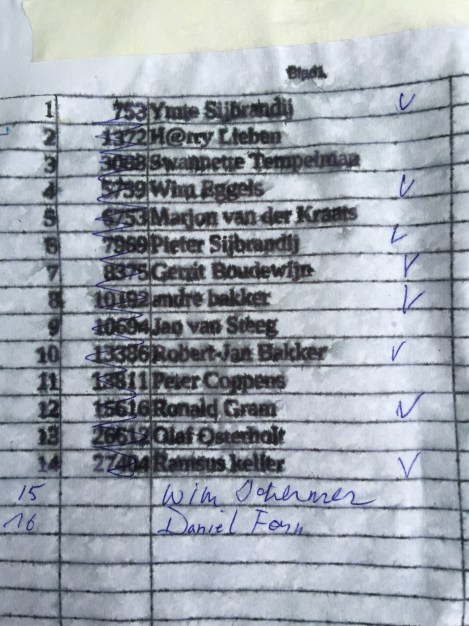 Blad1
1 753 Ymte Sijbrandij
2 1372 H@rry Lieben
3 Swannette Tempelman
4 5739 Wim Eggels
5 6753 Marjon van der Kraats
6 7969 Pieter Sijbrandij
7 8375 Gerrit Boudewijn
8 andre bakker
9 10694 Jan van Steeg
10 13386 Robert-Jan Bakker
11 13811 Peter Coppens
12 15616 Ronald Gram
13 Olaf Osterholt
14 22404 Ramsus keller
15 Wim Schermer
16 Daniel